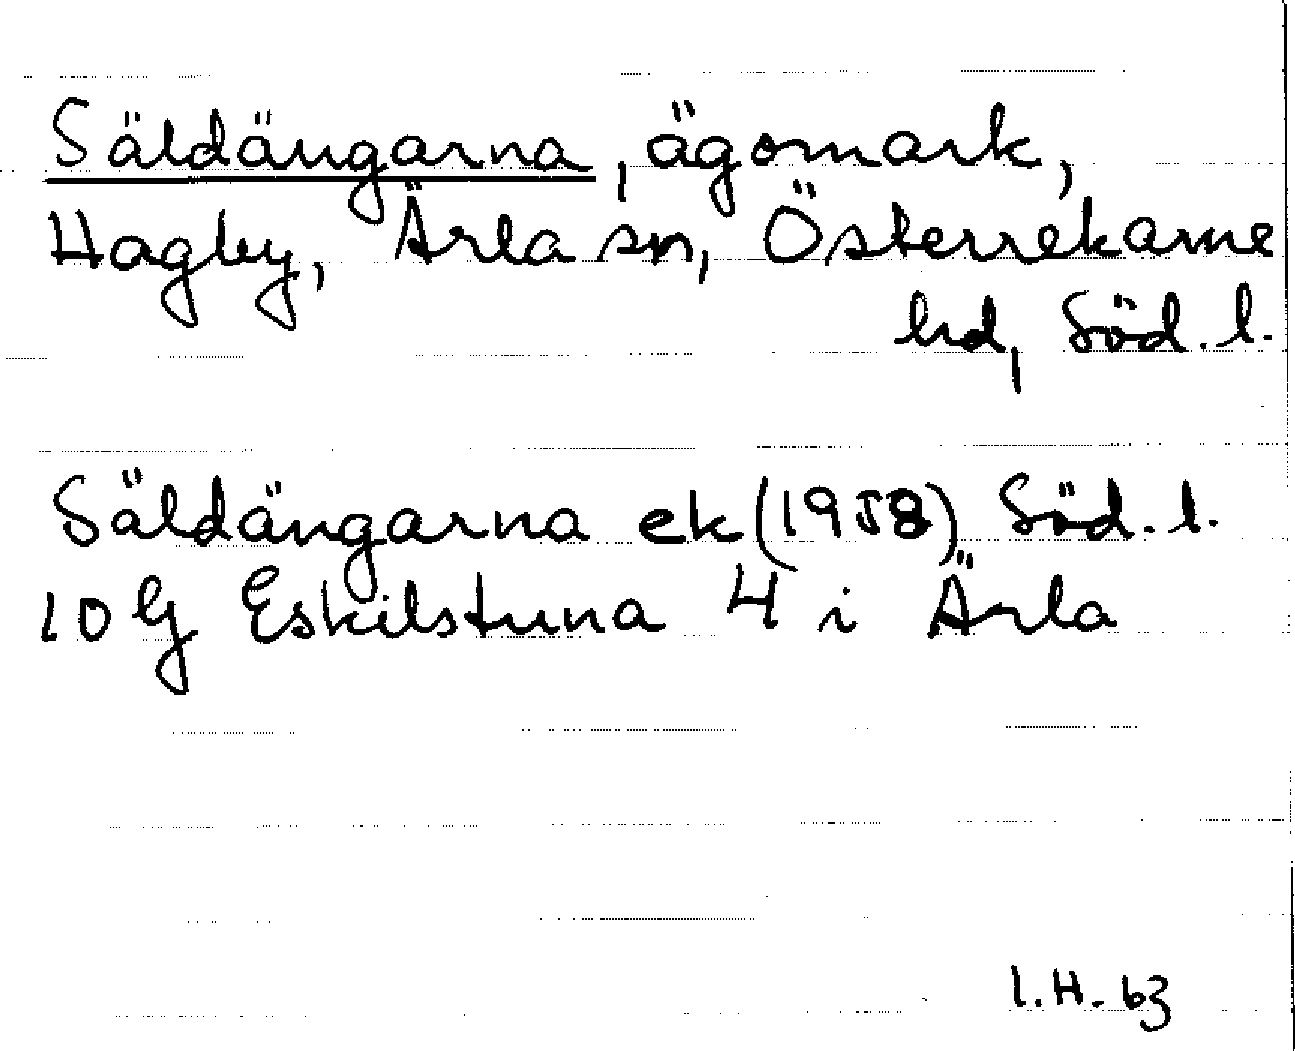 Säldängarna, ägomark,
Hagby, Ärla sn, Österrekarne
hd, Söd. l.
Säldängarna ek (1958) Söd. l.
10 G Eskilstuna 4 i Ärla
I. H. 63